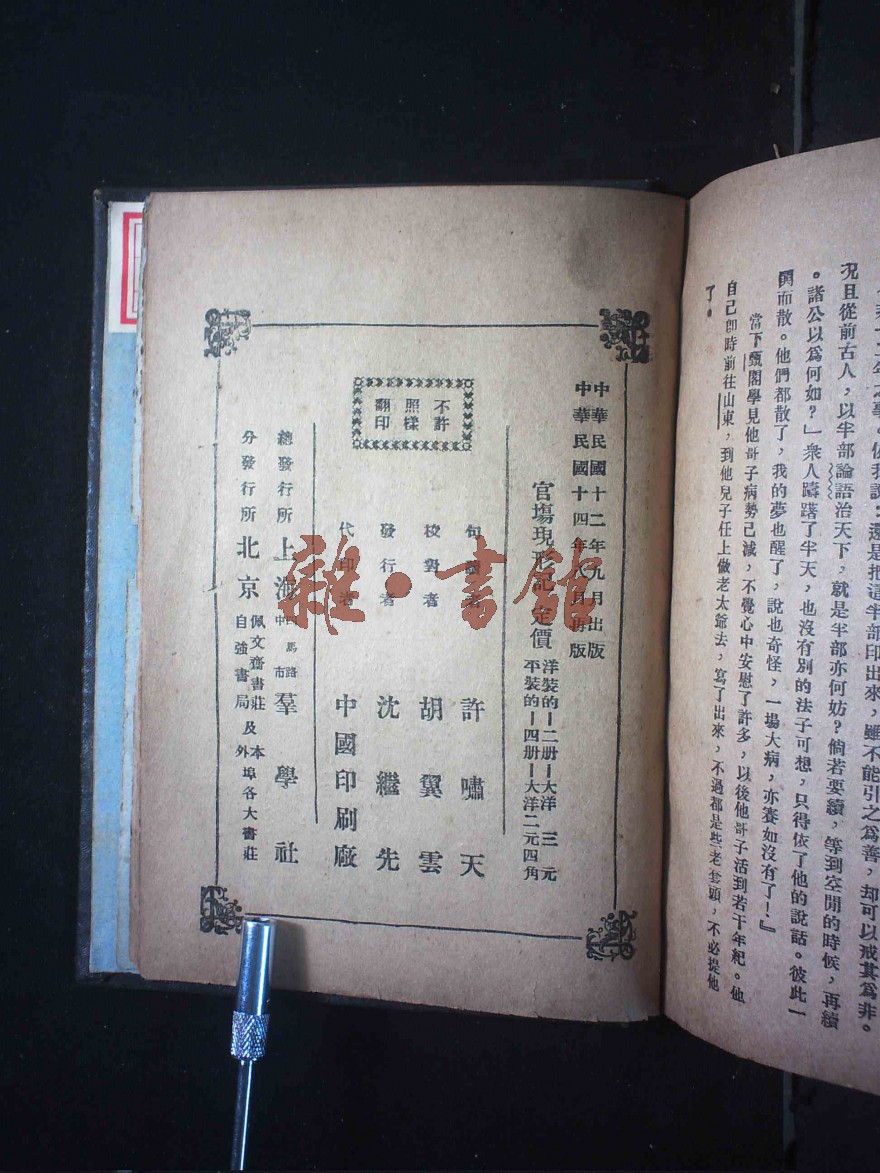 年之事。依我說:還是把這半部印出來,雖不能引之為善,却可以戒其為非。
況且從前古人,以半部論語治天下,就是半部亦何妨?倘若要續,等到空閒的時候,再續
。諸公以為何如?」衆人躊躇了半天,也沒有別的法子可想,只得依了他的說話。彼此一
鬨而散。他們都散了,我的夢也醒了,說也奇怪,一場大病,亦賽如沒有了!』
當下甄閣學見他哥子病勢已減,不覺心中安慰了許多,以後他哥子活到若干年紀。他
自己卽時前往山東,到他兒子任上做老太爺去,寫了出來,不過都是些老套頭,不必提他
了。
中華民國十二年九月出版
中華民國十四年八月再版
官塲現形記 定價
洋裝的—二册—大洋 三 元
平裝的—四册—大洋二元四角
不許
照樣
翻印
句讀者 許嘯天
校對者 胡翼雲
發行者 沈繼先
代印者 中國印刷廠
總發行所 上海 四馬路 中市 羣學社
分發行所 北京 佩文齋書莊 自強書局 及本外埠各大書莊
雜·書館